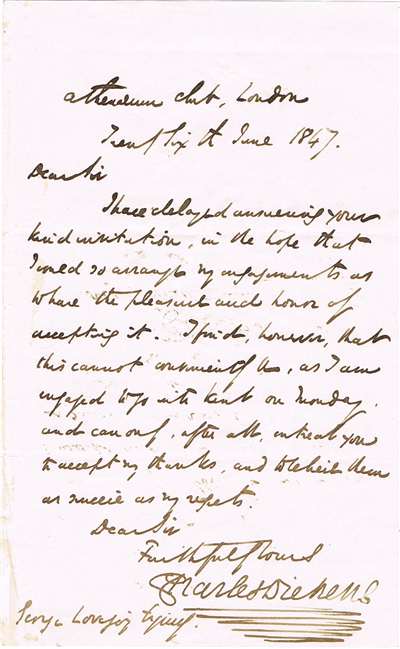 Athenæum Club, London
Twenty Sixth June 1847.
Dear Sir
I have delayed answering your
kind invitation, in the hope that
I could so arrange my engagements as
to have the pleasure and honor of
accepting it. I find, however, that
this cannot conveniently be, as I am
engaged to go into Kent on Monday.
and can only, after all, entreat you
to accept my thanks, and to believe them
as sincere as my regrets.
Dear Sir
Faithfully Yours
Charles Dickens
George Lovejoy Esquire.